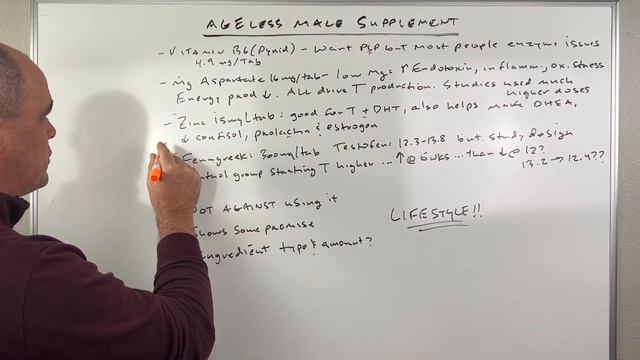 AGELESS MALE SUPPLEMENT
- VITAMIN B6 (Pyrid) - Want P5P but most people enzyme issues
4.9 mg/Tab
- mg Aspartate 16 mg/tab - low Mg: ↑ Endotoxin, inflamm, ox. stress
Energy prod ↓. All drive T production. Studies used much
higher doses
- Zinc 15mg/tab: good for T + DHT, also helps make DHEA,
↓ cortisol, prolactin & estrogen
Fenugreek: 300mg/tab Testofen: 12.3-13.8 but study design
control group starting T higher ... ↑ @ 6wks ... than ↓ @ 12?
13.2 → 12.4??
NOT AGAINST using it
Shows some promise
Ingredient type & amount?
LIFESTYLE!!